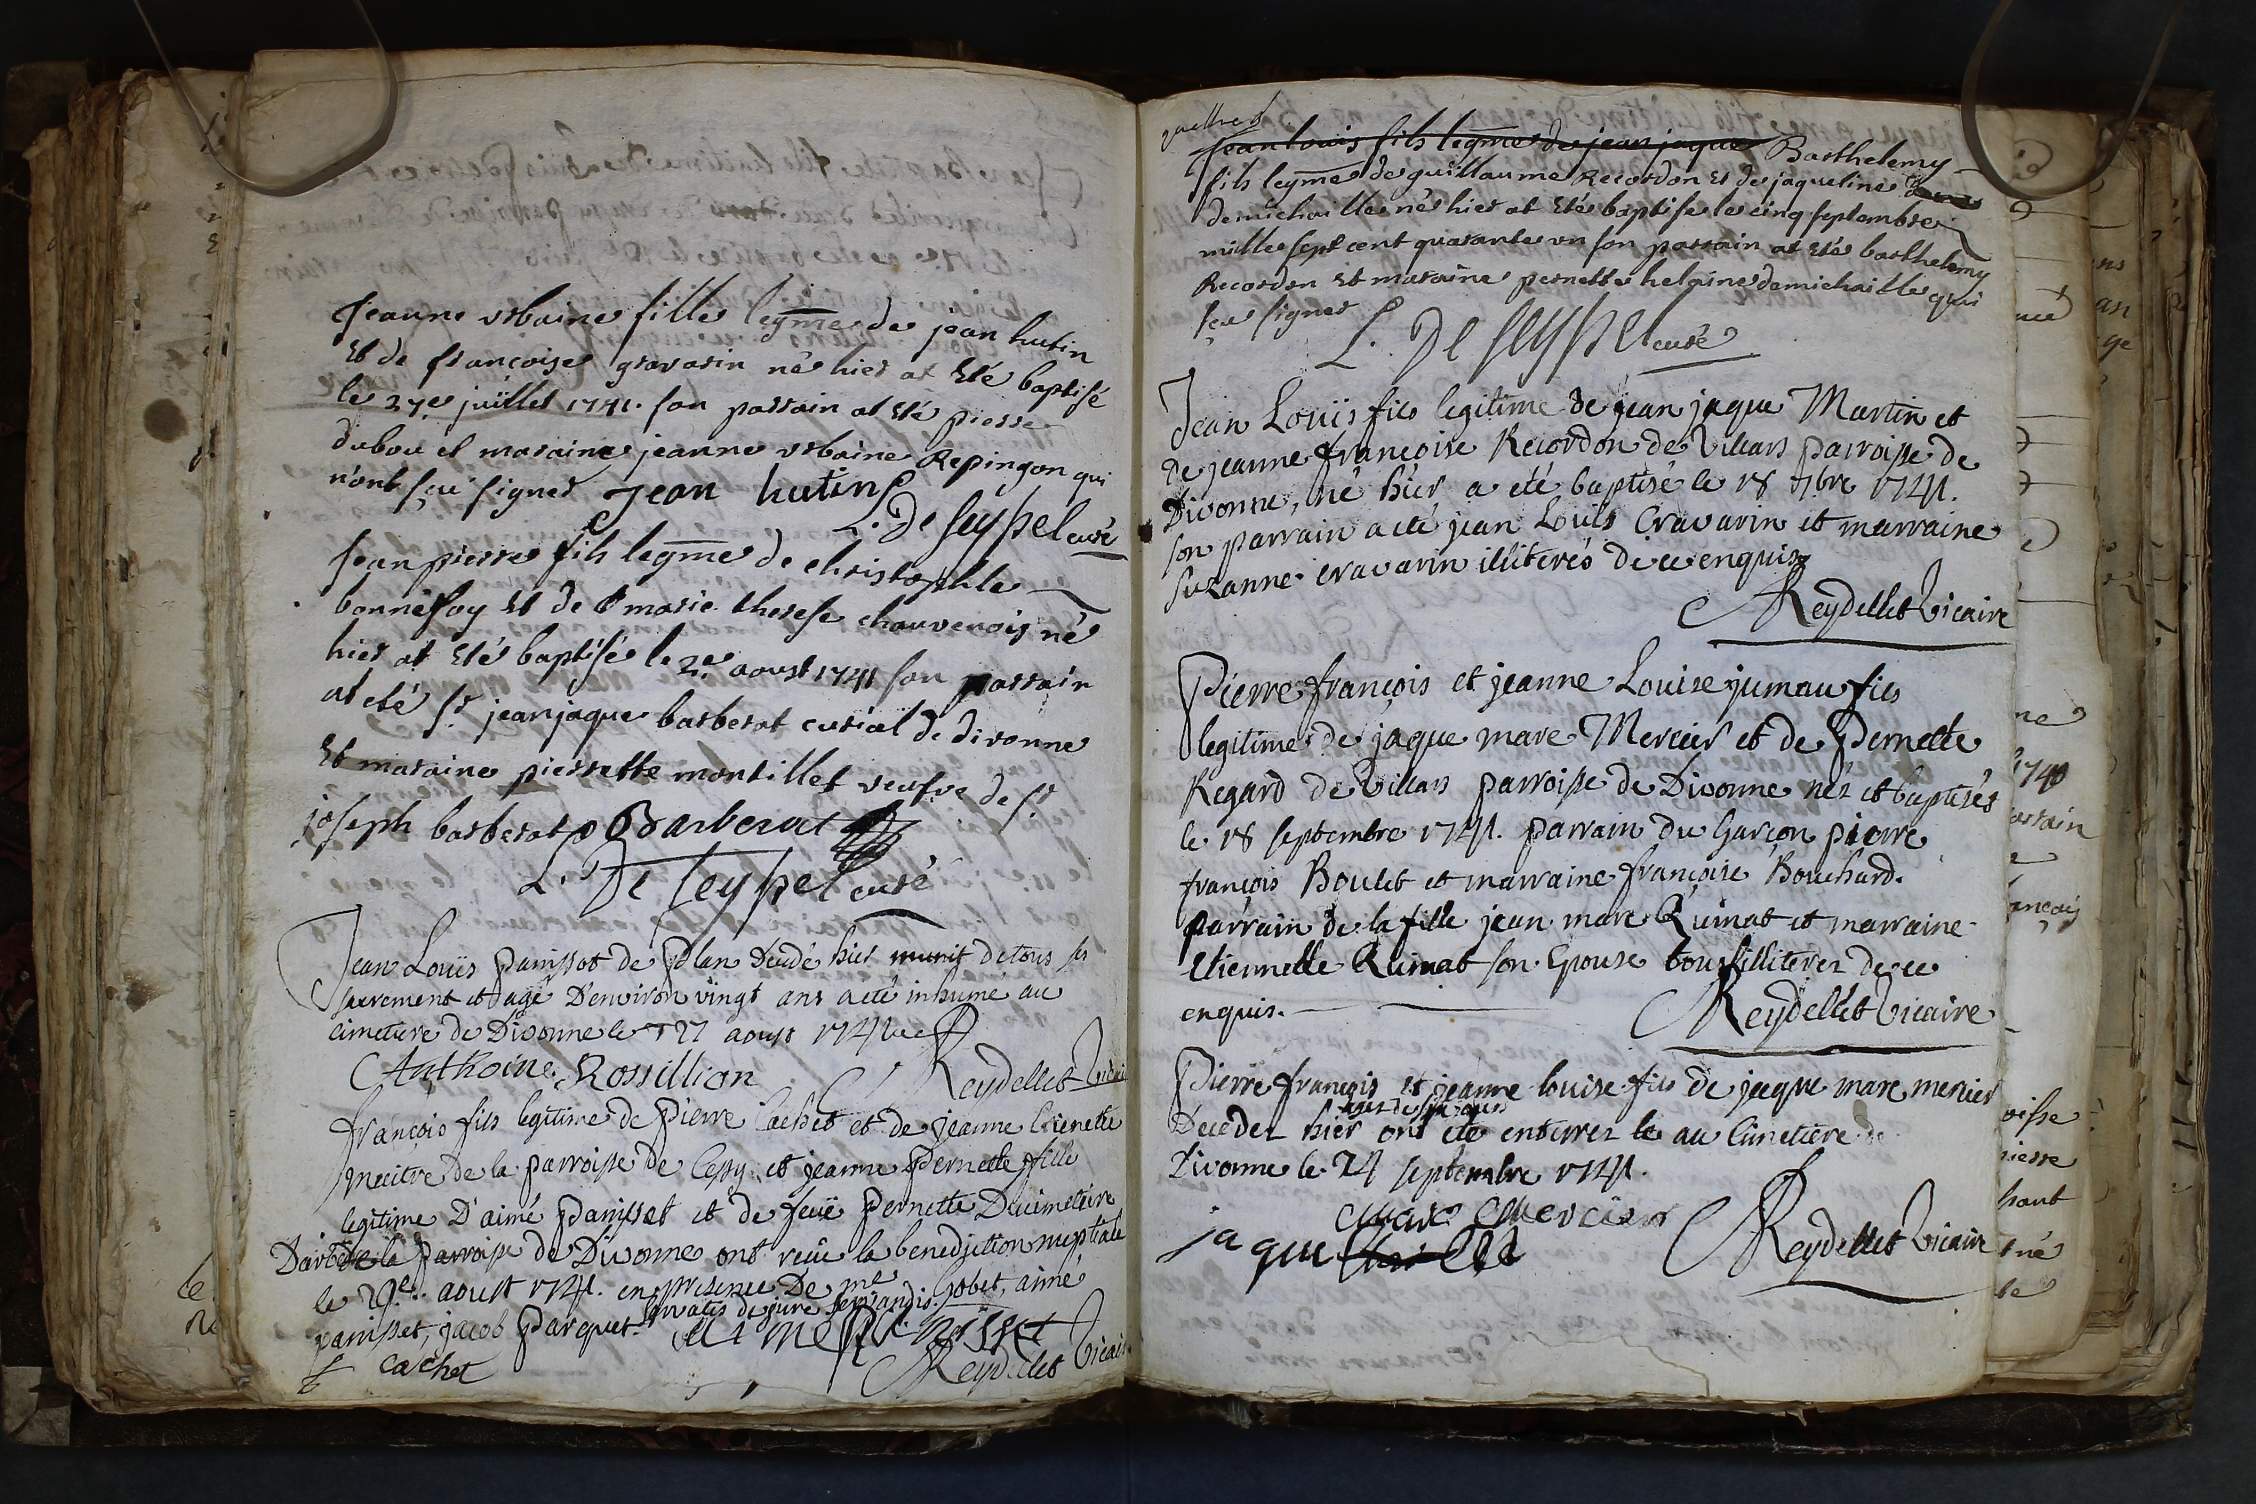 Jeanne urbaine fille legme de jean hutin
Et de francoise gravarin né hier at Eté baptisé
le 27e juillet 1741. son parrain at Eté pierre
dubou et maraine jeanne urbaine Repingon qui
n'ont sçu signer Jean hutin
L. De seyssel curé
Jean pierre fils legme de christophle
bonnefoy Et de marie therese chauvenois né
hier at Eté baptisé le 2e aoust 1741 son parrain
at eté sr jean jaque barberat curial de divonne
Et maraine pierrette montillet veufve de sr
joseph barberat Barberat
L. De seyssel curé
Jean Louis panissot de Plan Decedé hier munit de tous ses
sacrement et agé D'environ vingt ans a eté inhumé au
cimetiere de Divonne le 27 aoust 1741
Anthoine Rossillion Reydellet Vicaire
françois fils legitime de pierre Cachet et de jeanne Etienette
Mecitre de la parroisse de Cessy et jeanne Pernette fille
legitime D'aimé panissat et de feüe Pernette Ducimetiere
D'arbere la parroisse de Divonne ont reçue la benediction nuptiale
le 29e aoust 1741. en presence De me Gobet, aimé
servatis de jure servandis
panisset, jacob parquet
f cachet Reydellet Vicaire
Jean louis fils legme de jean jaque Barthelemy
fils legme de guillaume Recordon Et de jaqueline
demichaille né hier at Eté baptise le cinq septembre
mille sept cent quarante un son parrain at Eté barthelemy
Recordon Et maraine pernette helaine demichaille qui
sçu signer
L. De seyssel curé
Jean Louis fils legitime de jean jaque Martin et
de jeanne françoise Recordon de Villars parroisse de
Divonne, né hier a eté baptisé le 18 7bre 1741.
son parrain a eté jean Louis Cravarin et marraine
Suzanne cravarin illiterés de ce enquis
Reydellet Vicaire
Pierre françois et jeanne Louise jumau fils
legitime de jaque marc Mercier et de Pernette
Regard de Villars parroisse de Divonne nés et baptisés
le 18 septembre 1741. parrain du Garçon pierre
françois Boulet et marraine françoise Bouchard.
parrain de la fille jean marc Ruinat et marraine
Etiennette Ruinat son Epouse tous illiterez de ce
enquis.
Reydellet Vicaire
Pierre françois et jeanne louise fils de jaque marc mercier
Decedez hier ont eté enterrez le au Cimetiere de
Divonne le 24 septembre 1741.
marc Mercier
jaque
Reydellet Vicaire
1740